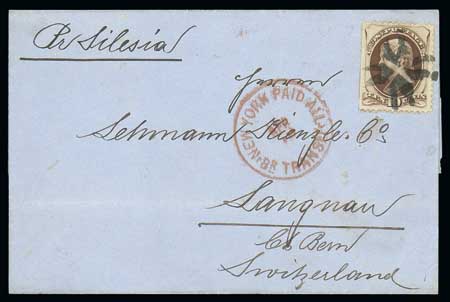 Pr Silesia
Herren
Lehmann Kienzle & Co
Langnau
Ct Bern
Switzerland
NEW YORK PAID ALL
BR TRANSIT